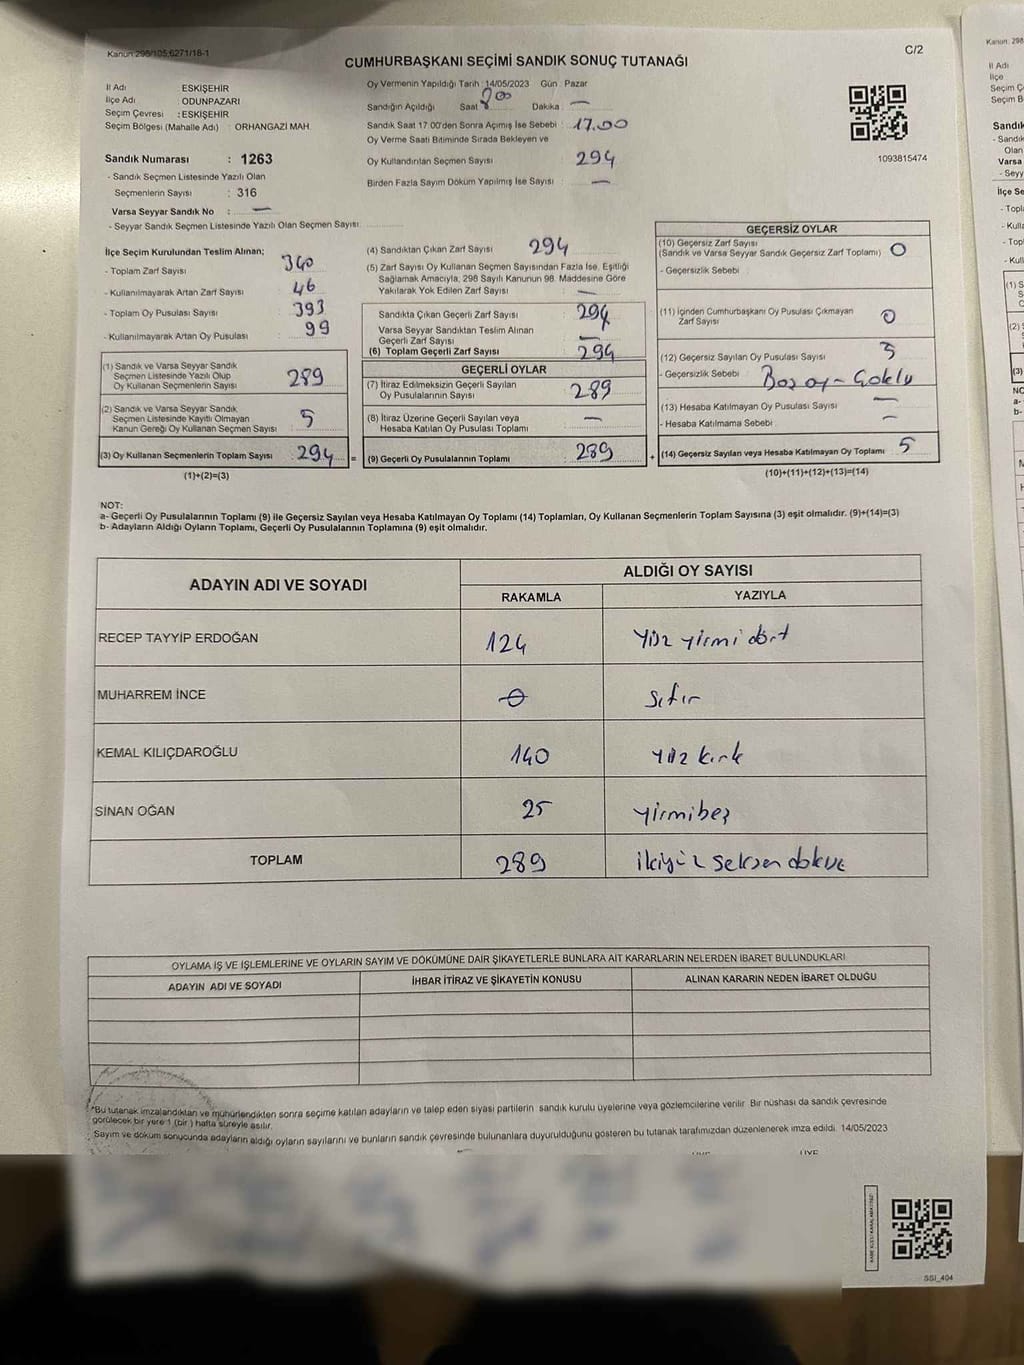 Kanun 298/105;6271/18-1
C/2
CUMHURBAŞKANI SEÇİMİ SANDIK SONUÇ TUTANAĞI
İl Adı : ESKİŞEHİR
İlçe Adı : ODUNPAZARI
Seçim Çevresi : ESKİŞEHİR
Seçim Bölgesi (Mahalle Adı) : ORHANGAZİ MAH.
Sandık Numarası : 1263
- Sandık Seçmen Listesinde Yazılı Olan
Seçmenlerin Sayısı : 316
Varsa Seyyar Sandık No : —
- Seyyar Sandık Seçmen Listesinde Yazılı Olan Seçmen Sayısı
Oy Vermenin Yapıldığı Tarih : 14/05/2023 Gün : Pazar
Sandığın Açıldığı Saat 8 00 Dakika : —
Sandık Saat 17.00'den Sonra Açımış İse Sebebi : 17.00
Oy Verme Saati Bitiminde Sırada Bekleyen ve
Oy Kullandırılan Seçmen Sayısı : 294
Birden Fazla Sayım Döküm Yapılmış İse Sayısı : —
1093815474
İlçe Seçim Kurulundan Teslim Alınan;
- Toplam Zarf Sayısı : 340
- Kullanılmayarak Artan Zarf Sayısı : 46
- Toplam Oy Pusulası Sayısı : 393
- Kullanılmayarak Artan Oy Pusulası : 99
(1) Sandık ve Varsa Seyyar Sandık
Seçmen Listesinde Yazılı Olup
Oy Kullanan Seçmenlerin Sayısı : 289
(2) Sandık ve Varsa Seyyar Sandık
Seçmen Listesinde Kayıtlı Olmayan
Kanun Gereği Oy Kullanan Seçmen Sayısı : 5
(3) Oy Kullanan Seçmenlerin Toplam Sayısı : 294 =
(1)+(2)=(3)
(4) Sandıktan Çıkan Zarf Sayısı : 294
(5) Zarf Sayısı Oy Kullanan Seçmen Sayısından Fazla İse, Eşitliği
Sağlamak Amacıyla, 298 Sayılı Kanunun 98. Maddesine Göre
Yakılarak Yok Edilen Zarf Sayısı : —
Sandıkta Çıkan Geçerli Zarf Sayısı : 294
Varsa Seyyar Sandıktan Teslim Alınan
Geçerli Zarf Sayısı : —
(6) Toplam Geçerli Zarf Sayısı : 294
GEÇERLİ OYLAR
(7) İtiraz Edilmeksizin Geçerli Sayılan
Oy Pusulalarının Sayısı : 289
(8) İtiraz Üzerine Geçerli Sayılan veya
Hesaba Katılan Oy Pusulası Toplamı : —
(9) Geçerli Oy Pusulalarının Toplamı : 289 +
GEÇERSİZ OYLAR
(10) Geçersiz Zarf Sayısı
(Sandık ve Varsa Seyyar Sandık Geçersiz Zarf Toplamı) : 0
- Geçersizlik Sebebi :
(11) İçinden Cumhurbaşkanı Oy Pusulası Çıkmayan
Zarf Sayısı : 0
(12) Geçersiz Sayılan Oy Pusulası Sayısı : 5
- Geçersizlik Sebebi :
(13) Hesaba Katılmayan Oy Pusulası Sayısı : —
- Hesaba Katılmama Sebebi : —
(14) Geçersiz Sayılan veya Hesaba Katılmayan Oy Toplamı : 5
(10)+(11)+(12)+(13)=(14)
NOT:
a- Geçerli Oy Pusulalarının Toplamı (9) ile Geçersiz Sayılan veya Hesaba Katılmayan Oy Toplamı (14) Toplamları, Oy Kullanan Seçmenlerin Toplam Sayısına (3) eşit olmalıdır. (9)+(14)=(3)
b- Adayların Aldığı Oyların Toplamı, Geçerli Oy Pusulalarının Toplamına (9) eşit olmalıdır.
ADAYIN ADI VE SOYADI ALDIĞI OY SAYISI
RAKAMLA YAZIYLA
RECEP TAYYİP ERDOĞAN 124 yüz yirmi dört
MUHARREM İNCE 0 sıfır
KEMAL KILIÇDAROĞLU 140 yüz kırk
SİNAN OĞAN 25 yirmibeş
TOPLAM 289 ikiyüz seksen dokuz
OYLAMA İŞ VE İŞLEMLERİNE VE OYLARIN SAYIM VE DÖKÜMÜNE DAİR ŞİKAYETLERLE BUNLARA AİT KARARLARIN NELERDEN İBARET BULUNDUKLARI
ADAYIN ADI VE SOYADI İHBAR İTİRAZ VE ŞİKAYETİN KONUSU ALINAN KARARIN NEDEN İBARET OLDUĞU
*Bu tutanak imzalandıktan ve mühürlendikten sonra seçime katılan adayların ve talep eden siyasi partilerin sandık kurulu üyelerine veya gözlemcilerine verilir. Bir nüshası da sandık çevresinde
görülecek bir yere 1 (bir) hafta süreyle asılır.
Sayım ve döküm sonucunda adayların aldığı oyların sayılarını ve bunların sandık çevresinde bulunanlara duyurulduğunu gösteren bu tutanak tarafımızdan düzenlenerek imza edildi. 14/05/2023
SSI_404